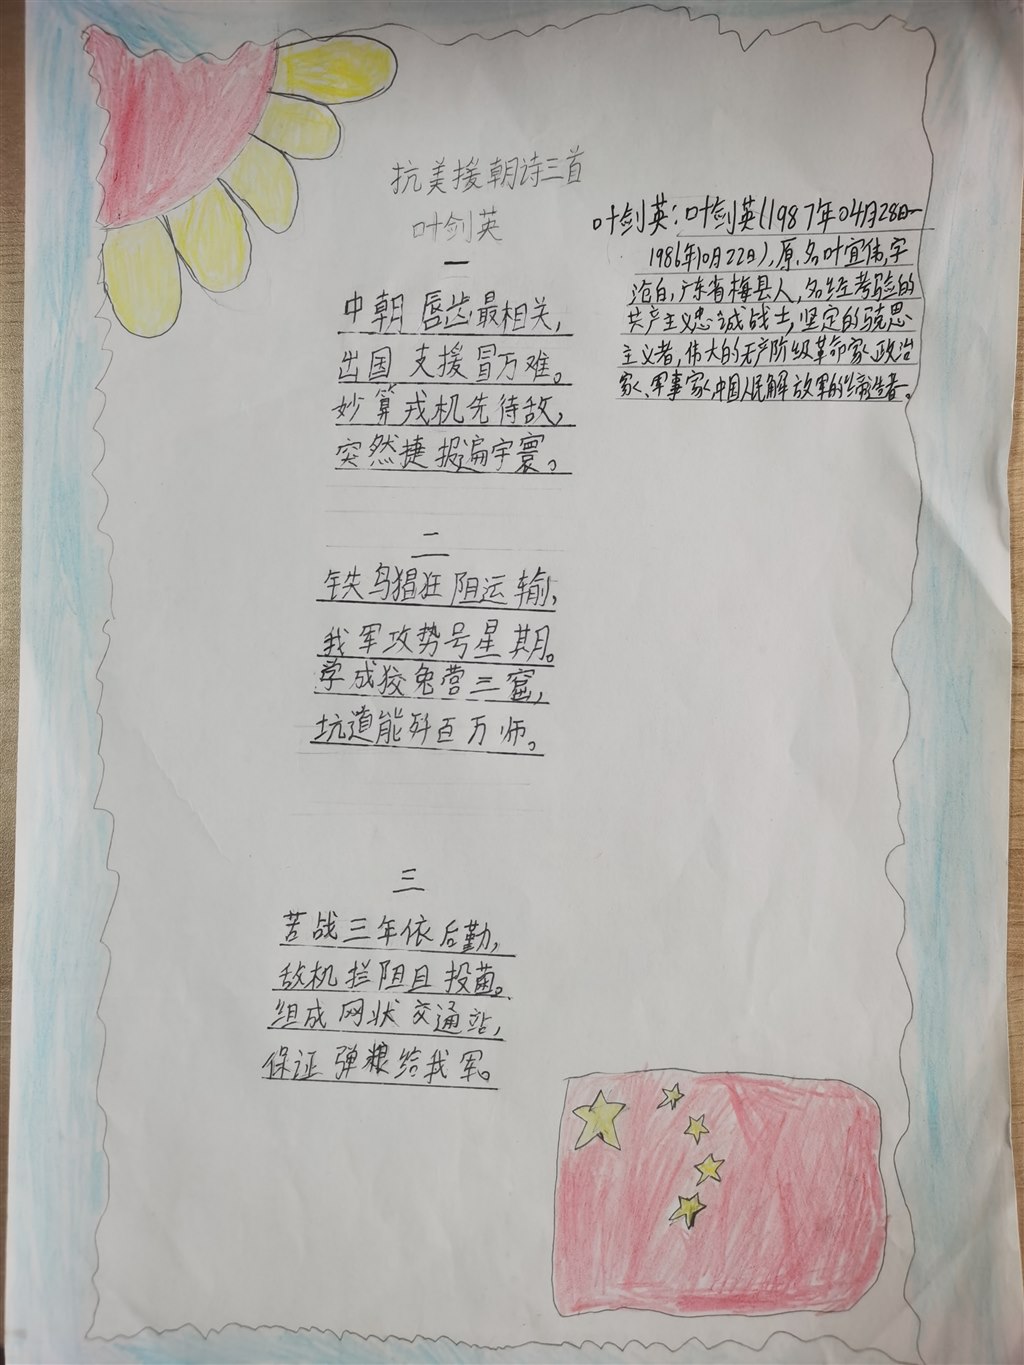 抗美援朝诗三首
叶剑英
一
中朝唇齿最相关,
出国支援冒万难。
妙算戎机先待敌,
突然捷报遍宇寰。
二
铁鸟猖狂阻运输,
我军攻势号星期。
学成狡兔营三窟,
坑道能歼百万师。
三
苦战三年依后勤,
敌机拦阻且投菌。
组成网状交通站,
保证弹粮给我军。
叶剑英:叶剑英(1987年04月28日一
1986年10月22日),原名叶宜伟,字
沧白,广东省梅县人,名经考验的
共产主义忠诚战士,坚定的克思
主义者,伟大的无产阶级革命家、政治
家、军事家,中国人民解放军的缔造者。